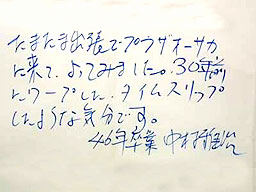 たまたま出張でプラザオーサカ
に来て、よってみました。30年前
にワープした、タイムスリップ
したような気分です。
46年卒業 中村